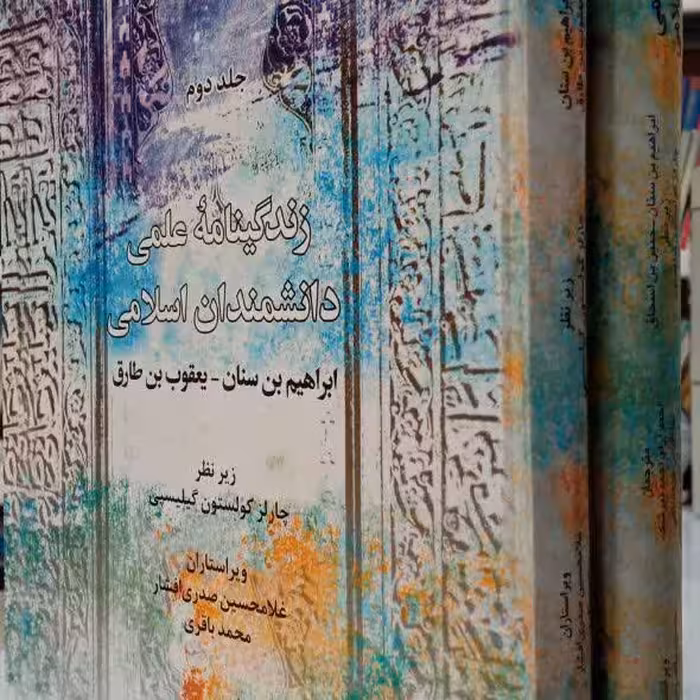 جلد دوم
زندگینامهٔ علمی
دانشمندان اسلامی
ابراهیم بن سنان - یعقوب بن طارق
زیر نظر
چارلز کولستون گیلیسپی
ویراستاران
غلامحسین صدری افشار
محمد باقری
ابراهیم بن سنان
زیر نظر
ویراستاران
غلامحسین صدری افشار
ابراهیم بن سنان - حنین بن اسحاق
زیر نظر
مترجمان